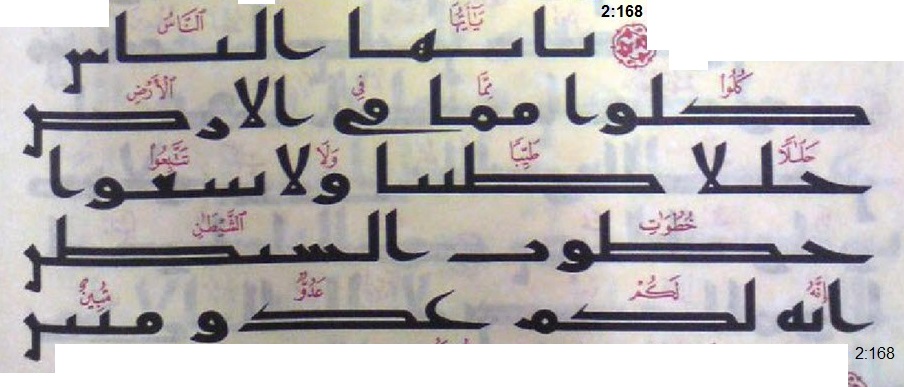 2:168
يَـٰٓأَيُّهَا ٱلنَّاسُ
يايها الناس
كُلُوا۟ مِمَّا فِى ٱلْأَرْضِ
كلوا مما في الارض
حَلَـٰلًا طَيِّبًا وَلَا تَتَّبِعُوا۟
حللا طيبا ولا تتبعوا
خُطُوَٰتِ ٱلشَّيْطَـٰنِ
خطوت الشيطن
إِنَّهُۥ لَكُمْ عَدُوٌّ مُّبِينٌ
انه لكم عدو مبين
2:168